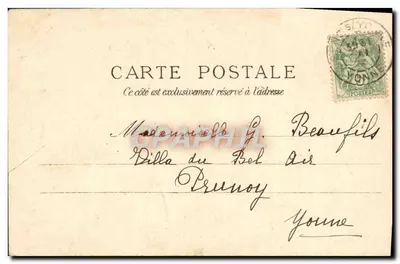 CARTE POSTALE
Ce côté est exclusivement réservé à l'adresse
Mademoiselle G. Beaufils
Villa du Bel Air
Prunoy
Yonne
YONNE